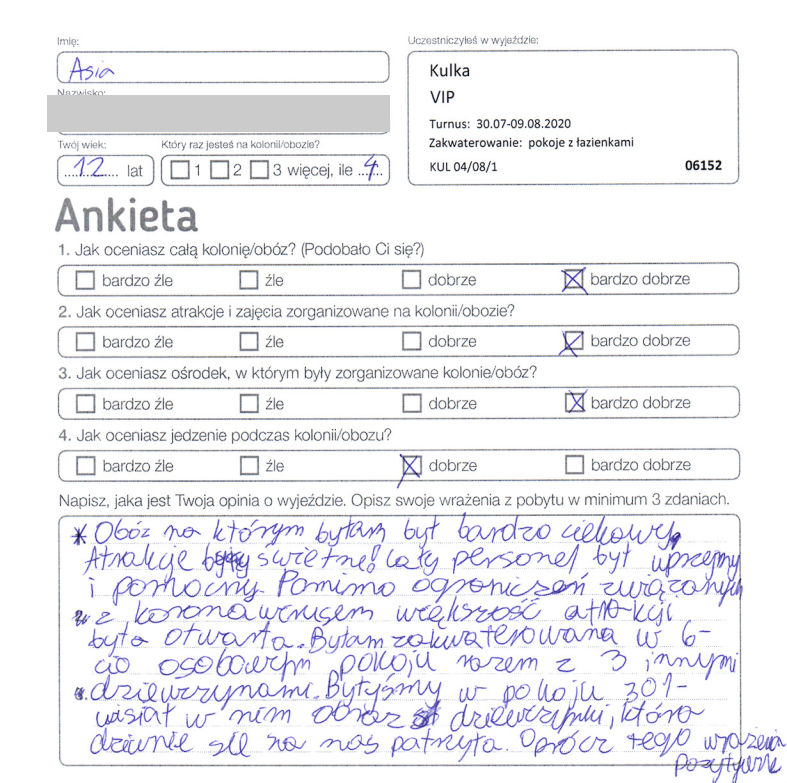 Imię:
Asia
Nazwisko:
Twój wiek:
12 lat
Który raz jesteś na kolonii/obozie?
1 2 3 więcej, ile 4
Uczestniczyłeś w wyjeździe:
Kulka
VIP
Turnus: 30.07-09.08.2020
Zakwaterowanie: pokoje z łazienkami
KUL 04/08/1 06152
Ankieta
1. Jak oceniasz całą kolonię/obóz? (Podobało Ci się?)
bardzo źle źle dobrze bardzo dobrze
2. Jak oceniasz atrakcje i zajęcia zorganizowane na kolonii/obozie?
bardzo źle źle dobrze bardzo dobrze
3. Jak oceniasz ośrodek, w którym były zorganizowane kolonie/obóz?
bardzo źle źle dobrze bardzo dobrze
4. Jak oceniasz jedzenie podczas kolonii/obozu?
bardzo źle źle dobrze bardzo dobrze
Napisz, jaka jest Twoja opinia o wyjeździe. Opisz swoje wrażenia z pobytu w minimum 3 zdaniach.
* Obóz na którym byłam był bardzo ciekawy,
Atrakcje były świetne! cały personel był uprzejmy
i pomocny. Pomimo ograniczeń związanych
z koronawirusem większość atrakcji
była otwarta. Byłam zakwaterowana w 6-
cio osobowym pokoju razem z 3 innymi
dziewczynami. Byłyśmy w pokoju 301-
wisiał w nim obraz dziewczynki, która
dziwnie się na nas patrzyła. Oprócz tego wrażenia
pozytywne